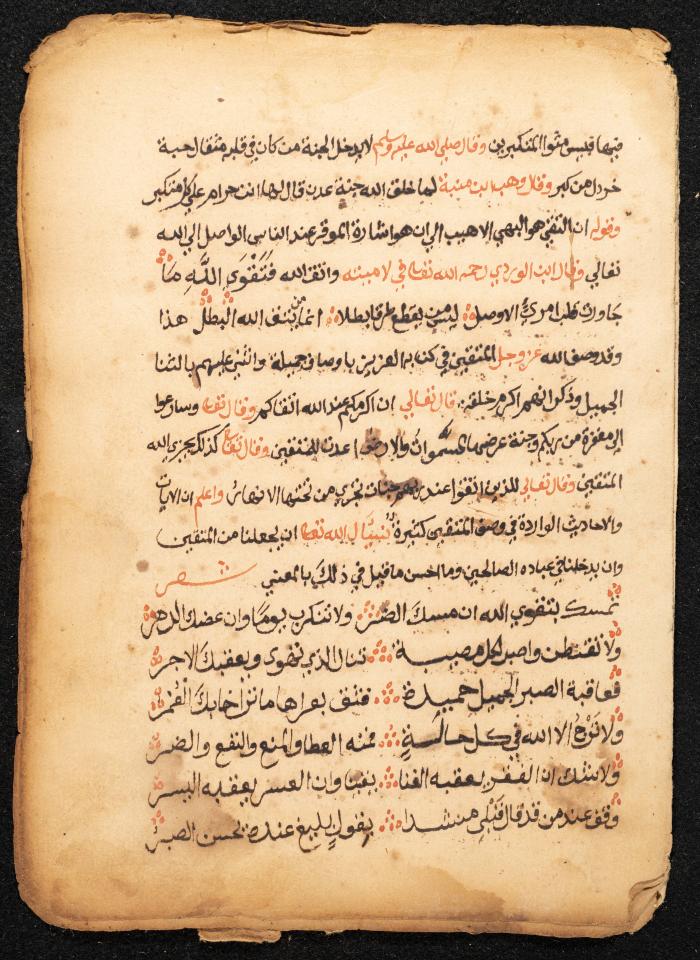 فيها فبيس مثوا المتكبرين وقال صلى الله عليه وسلم لا يدخل الجنة من كان في قلبه مثقال حبة
خردل من كبر وقال وهب ابن منبه لما خلق الله جنة عدن قال لها انت حرام علي كل متكبر
وقوله ان التقي هو البهي الاهيب الي ان هو اشارة الموقر عند الناس الواصل الي الله
تعالي وقال ابن الوردي رحمه الله تعالي في لاميته واتق الله فتقوي الله ما
جاورت قلب امرئ الا وصل ليس من يقطع طرقا بطلا انما من يتق الله البطل هذا
وقد وصف الله عز وجل المتقين في كتابه العزيز باوصاف جميلة واثني عليهم بالثنا
الجميل وذكر انهم اكرم خلقه قال تعالي ان اكرمكم عند الله اتقاكم وقال تعا وسارعوا
الي مغفرة من ربكم وجنة عرضها السموات والارض اعدت للمتقين وقال تعا كذلك يجزي الله
المتقين وقال تعالي للذين اتقوا عند ربهم جنات تجري من تحتها الانهار واعلم ان الايات
والاحاديث الواردة في وصف المتقين كثيرة الله تعا ان يجعلنا من المتقين
وان يدخلنا في عباده الصالحين وما احسن ما قيل في ذلك بالمعني شعر
تمسك بتقوي الله ان مسك الضر ولا تتكرب يوما وان عضك الدهر
ولا تقنطن واصبر لكل مصيبة تنال الذي تهوي ويعقبك الاجر
فعاقبة الصبر الجميل حميدة فثق بعراها ما تراخا بك
ولا ترج الا الله في كل حالة فمنه العطا والمنع والنفع والضر
ولا شك ان الفقر يعقبه الغنا يقينا وان العسر يعقبه اليسر
وقف عند من قد قال قبلي منشدا بقول بليغ عنده يحسن الصبر